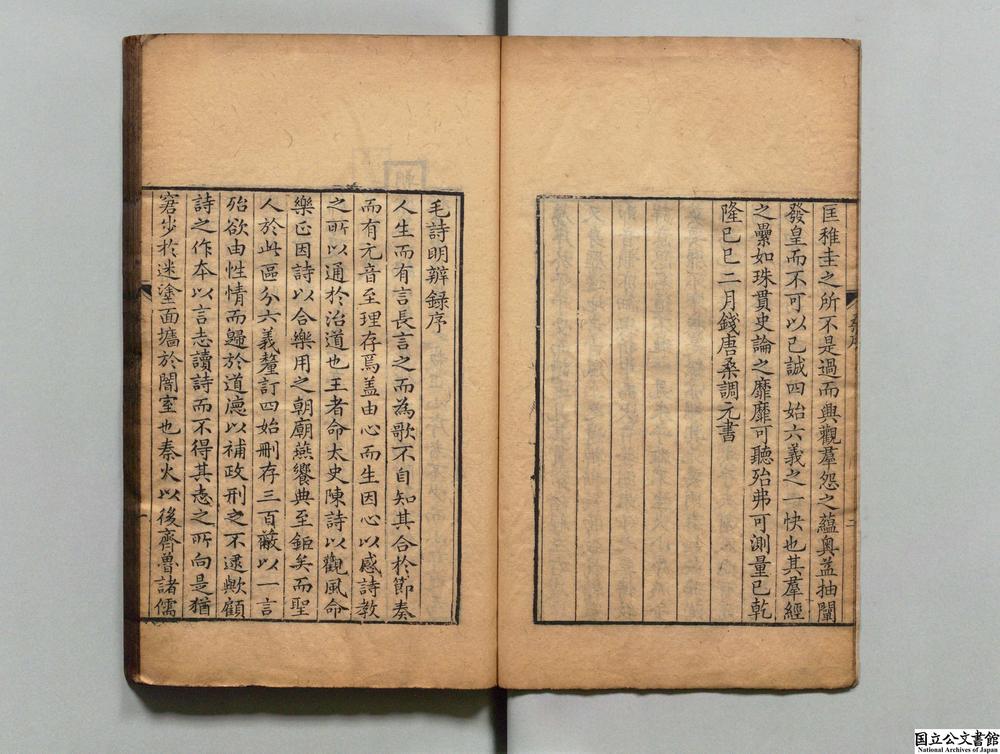 匡稚圭之所不是過而興觀羣怨之蘊奧益抽闡
發皇而不可以已誠四始六義之一快也其羣經
之纍如珠貫史論之靡靡可聽殆弗可測量已乾
隆己巳二月錢唐桑調元書
桑序
二
毛詩明辨録序
人生而有言長言之而為歌不自知其合於節奏
而有元音至理存焉盖由心而生因心以感詩教
之所以通於治道也王者命太史陳詩以觀風命
樂正因詩以合樂用之朝廟燕饗典至鉅矣而聖
人於此區分六義釐訂四始刪存三百蔽以一言
殆欲由性情而歸於道德以補政刑之不逮歟顧
詩之作本以言志讀詩而不得其志之所向是猶
窘步於迷塗面墻於闇室也秦火以後齊魯諸儒
国立公文書館
National Archives of Japan